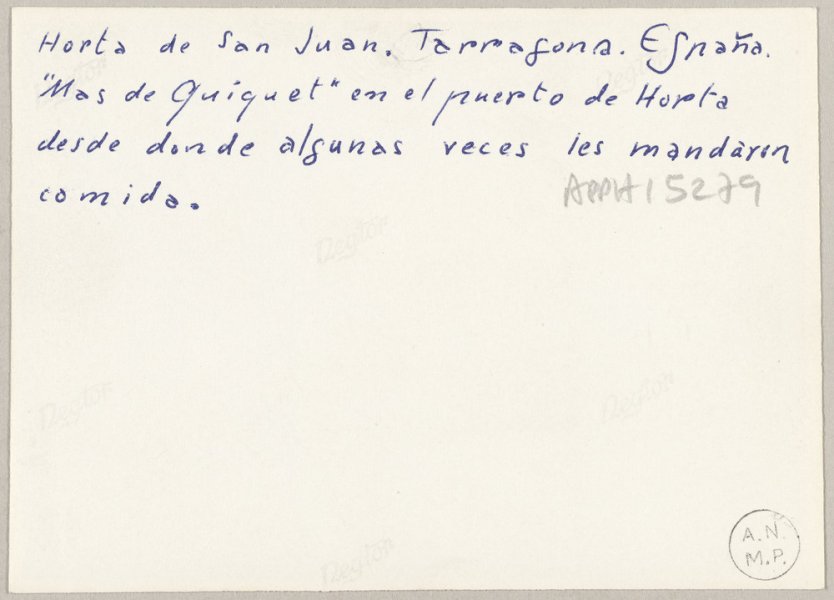 Horta de San Juan. Tarragona. España.
"Mas de Quiquet" en el puerto de Horta
desde donde algunas veces les mandaron
comida.
APPH15279
Negtor
Negtor
Negtor
Negtor
A.N.
M.P.